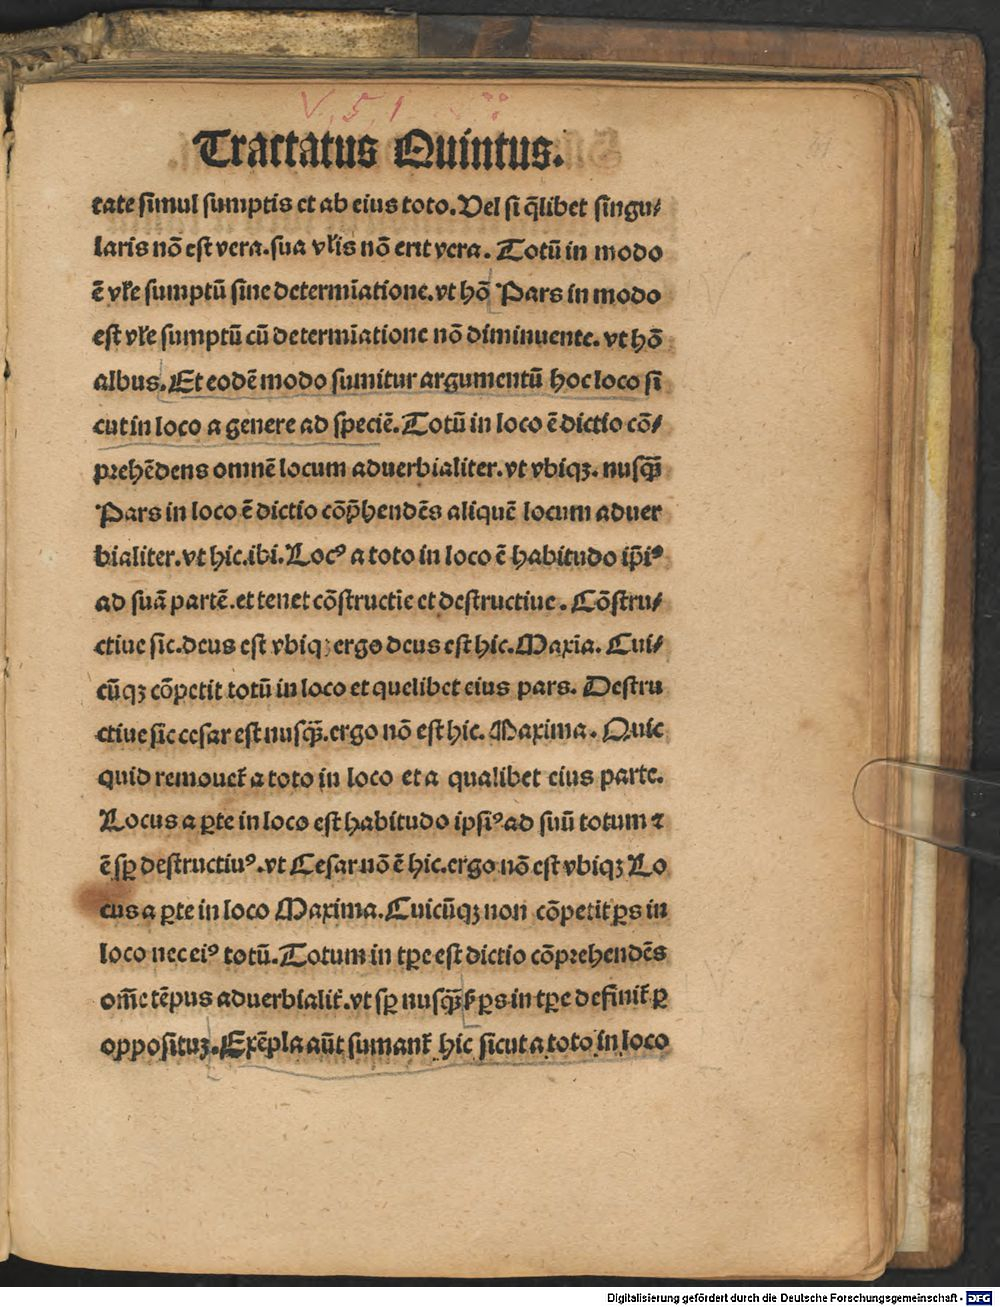 V.5.1
Tractatus Quintus.
tate simul sumptis et ab eius toto. Vel si q̄libet singu⸗
laris nō est vera. sua vl̓is nō erit vera. Totū in modo
ē vl̓e sumptū sine determīatione. vt hō Pars in modo
est vl̓e sumptū cū determīatione nō diminuente. vt hō
albus. Et eodē modo sumitur argumentū hoc loco si
cut in loco a genere ad speciē. Totū in loco ē dictio cō⸗
prehēdens omnē locum aduerbialiter. vt vbiqꝫ. nusq̄ꝫ
Pars in loco ē dictio cōp̄hendēs aliquē locum aduer
bialiter. vt hic. ibi. Locꝰ a toto in loco ē habitudo ip̄iꝰ
ad suā partē. et tenet cōstructīe et destructiue. Cōstru⸗
ctiue sic. deus est vbiqꝫ ergo deus est hic. Maxīa. Cui⸗
cūqꝫ cōpetit totū in loco et quelibet eius pars. Destru
ctiue sic cesar est nusq̄ꝫ. ergo nō est hic. Maxima. Quic
quid remouet᷑ a toto in loco et a qualibet eius parte.
Locus a ꝑte in loco est habitudo ipsiꝰ ad suū totum ⁊
ē sꝑ destructiuꝰ. vt Cesar nō ē hic. ergo nō est vbiqꝫ Lo
cus a ꝑte in loco Maxima. Cuicūqꝫ non cōpetit ꝑs in
loco nec eiꝰ totū. Totum in tꝑe est dictio cōprehendēs
om̄e tēpus aduerbialit᷑. vt sꝑ nusq̄ꝫ ꝑs in tꝑe definit᷑ ꝑ
opposituꝫ. Exēpla aūt sumant᷑ hic sicut a toto in loco
Digitalisierung gefördert durch die Deutsche Forschungsgemeinschaft - DFG